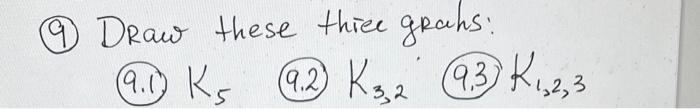 9 Draw these three grahs:
9.1 K₅ 9.2 K₃,₂ 9.3 K₁,₂,₃